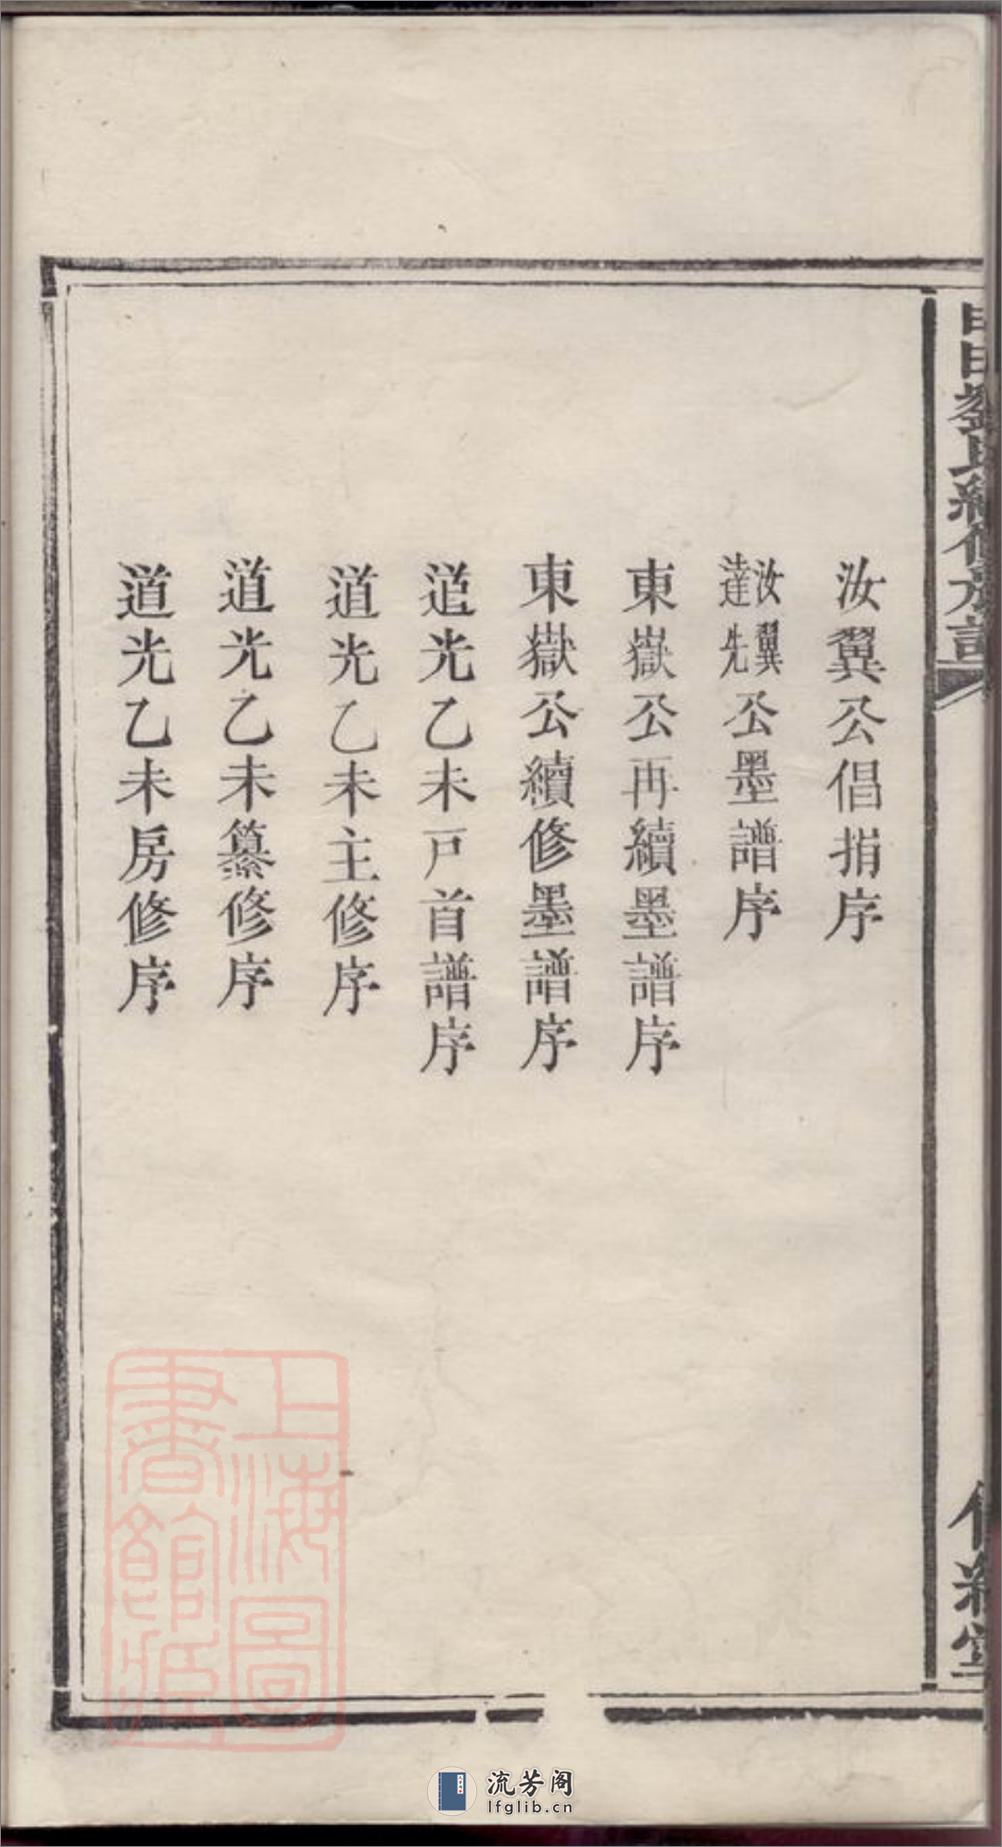 汝翼公倡捐序
汝翼達先公墨譜序
東嶽公再續墨譜序
東嶽公續修墨譜序
道光乙未戸首譜序
道光乙未主修序
道光乙未纂修序
道光乙未房修序
上海圖書館藏
流芳阁
lfglib.cn